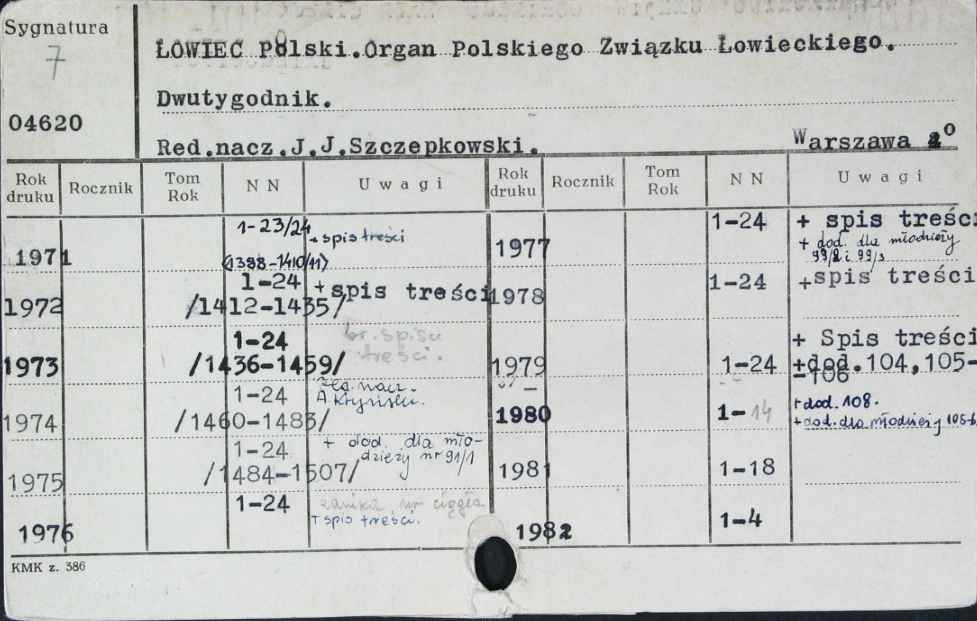 Sygnatura
7
04620
ŁOWIEC Polski. Organ Polskiego Związku Łowieckiego.
Dwutygodnik.
Red.nacz.J.J.Szczepkowski. Warszawa 4°
Rok druku Rocznik Tom Rok N N Uwagi Rok druku Rocznik Tom Rok N N Uwagi
1971 1-23/24 + spis treści
(1388-1410/11)
1972 1-24 +spis treści
/1412-1435/
1973 1-24 br. spisu treści.
/1436-1459/
1974 1-24 nacz.
/1460-1483/ A.
1975 1-24 + dod. dla mło-
/1484-1507/ dzieży nr 91/1
1976 1-24 zanika nr ciągła
+ spis treści.
1977 1-24 + spis treści
+ dod. dla młodzieży
99/2 i 99/3
1978 1-24 +spis treści
1979 1-24 + Spis treści
+dod.104,105-
-106
1980 1-14 +dod. 108.
+dod. dla młodzieży
1981 1-18
1982 1-4
KMK z. 386